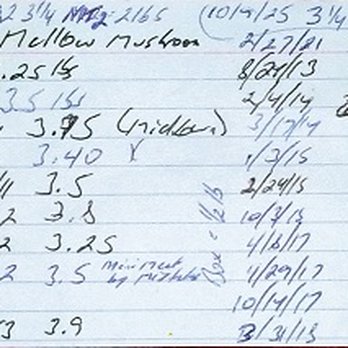 2 3 1/4 2165 (10/9/25 3 1/4
Mellow Mushroom 2/27/21
.25 lbs 8/24/13
3.5 lbs 2/4/14
3.75 (Midtown) 3/17/14
3.40 X 1/3/15
3.5 2/24/15
2 3.8 10/3/15
2 3.25 4/8/17
2 3.5 Mini Meet by 4/29/17
Box = 1/2 lb
10/14/17
3 3.9 3/31/13